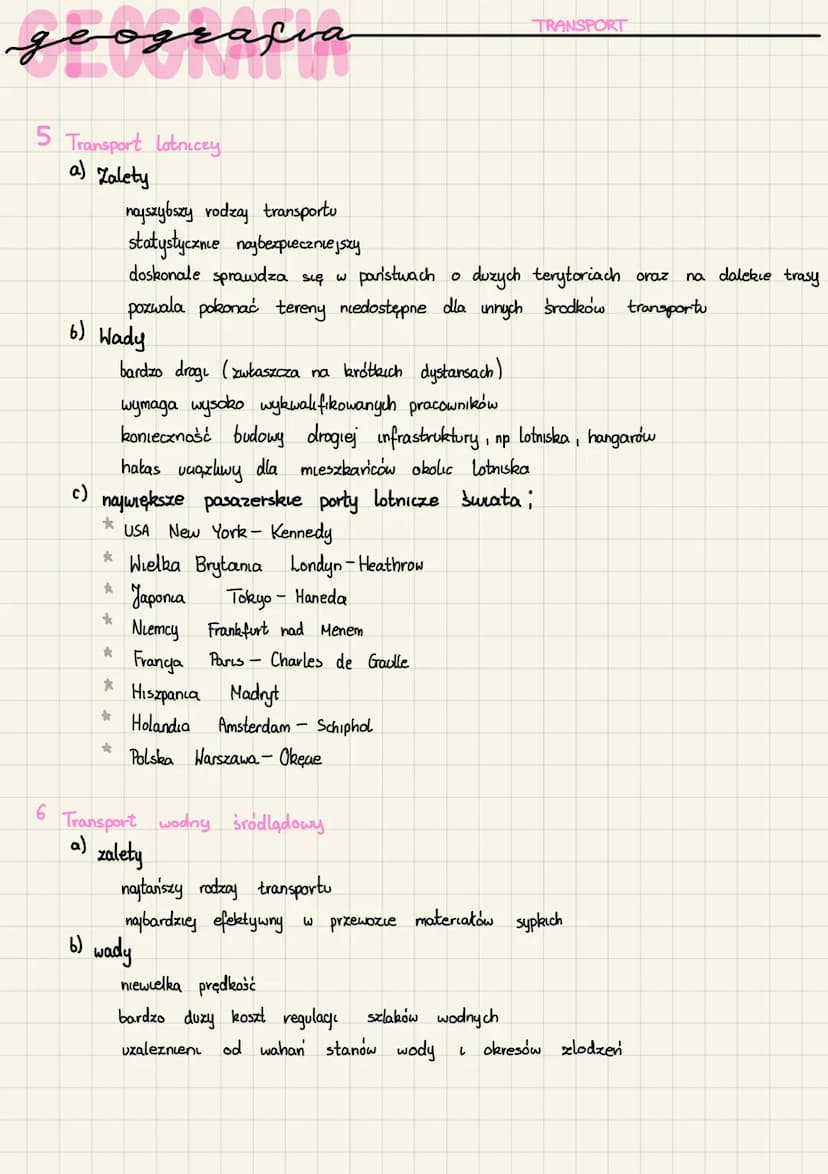 GEOGRAFIA
geografia
TRANSPORT
5 Transport lotniczy
a) Zalety
najszybszy rodzaj transportu
statystycznie najbezpieczniejszy
doskonale sprawdza się w państwach o dużych terytoriach oraz na dalekie trasy
pozwala pokonać tereny niedostępne dla innych środków transportu
b) Wady
bardzo drogi (zwłaszcza na krótkich dystansach)
wymaga wysoko wykwalifikowanych pracowników
konieczność budowy drogiej infrastruktury, np lotniska, hangarów
hałas uciążliwy dla mieszkańców okolic lotniska
c) największe pasażerskie porty lotnicze świata;
* USA New York - Kennedy
* Wielka Brytania Londyn - Heathrow
* Japonia Tokyo - Haneda
* Niemcy Frankfurt nad Menem
* Francja Paris - Charles de Gaulle
* Hiszpania Madryt
* Holandia Amsterdam - Schiphol
* Polska Warszawa - Okęcie
6 Transport wodny śródlądowy
a) zalety
najtańszy rodzaj transportu
najbardziej efektywny w przewozie materiałów sypkich
b) wady
niewielka prędkość
bardzo duży koszt regulacji szlaków wodnych
uzależnieni od wahań stanów wody i okresów zlodzeń